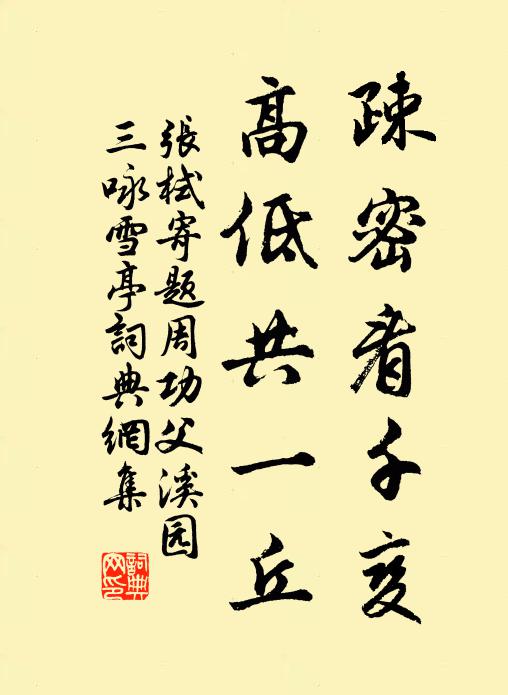 疎密看千变
高低共一丘
張栻寄题周功父溪园
三咏雪亭詞典網集
詞典
网印